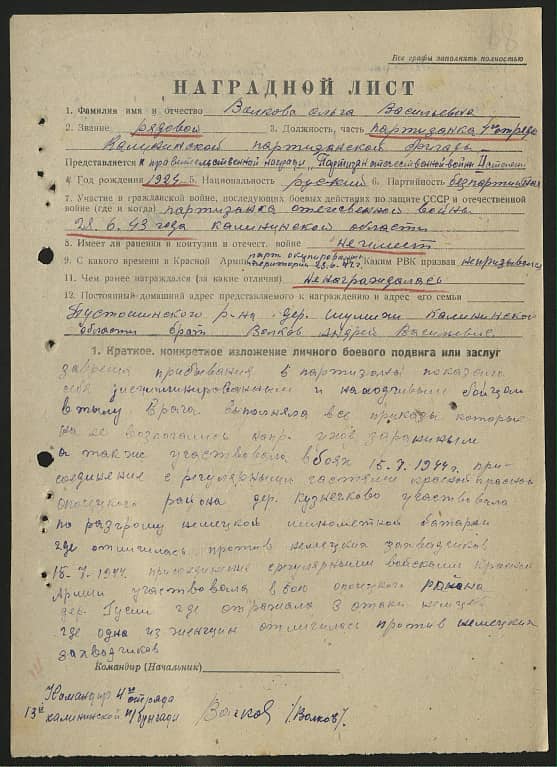 Все графы заполнять полностью
НАГРАДНОЙ ЛИСТ
1. Фамилия имя и отчество Волкова Ольга Васильевна
2. Звание рядовой 3. Должность, часть партизанка 4го отряда
Калининской партизанской бригады
Представляется к правительственной награды "Партизан отечественной войны" II степени
4 Год рождения 1924 5. Национальность руский 6. Партийность безпартийная
7. Участие в гражданской войне, последующих боевых действиях по защите СССР и отечественной
войне (где и когда) партизанка отечествен. война
28.6.43 года Калининской области
8. Имеет ли ранения и контузии в отечест. войне неимеет
9. С какого времени в Красной Армии парт. окупирован. территории 28.6.43 г. Каким РВК призван непризывался
11. Чем ранее награждался (за какие отличия) ненаграждалась
12. Постоянный домашний адрес представляемого к награждению и адрес его семьи
Пустошинского р-на дер. Шулики Калининской
области брат Волков Андрей Васильевич.
1. Краткое, конкретное изложение личного боевого подвига или заслуг
за время прибывания в партизаны показала
себя дисциплинированным и находчивым бойцом
в тылу врага выполняла все приказы которые
на ее возлогались
а так же участвовала в боях 15.7.1944 г. при-
соединение с регулярными частями красной
опочецкого района дер. Кузнечково участвовала
по разгрому немецкой минометной батареи
где отличилась против немецких захвадсиков
15-7.1944 присоединение срегулярными войсками Красной
Армии участвовала в бою опочецкого района
дер. Гусии где отражала 3 атаки немцев
где одна из женщин отличилась против немецких
захвадчиков
Командир (Начальник)
Командир 4го отряда
13й калининской п/бригади Волков /Волков/.